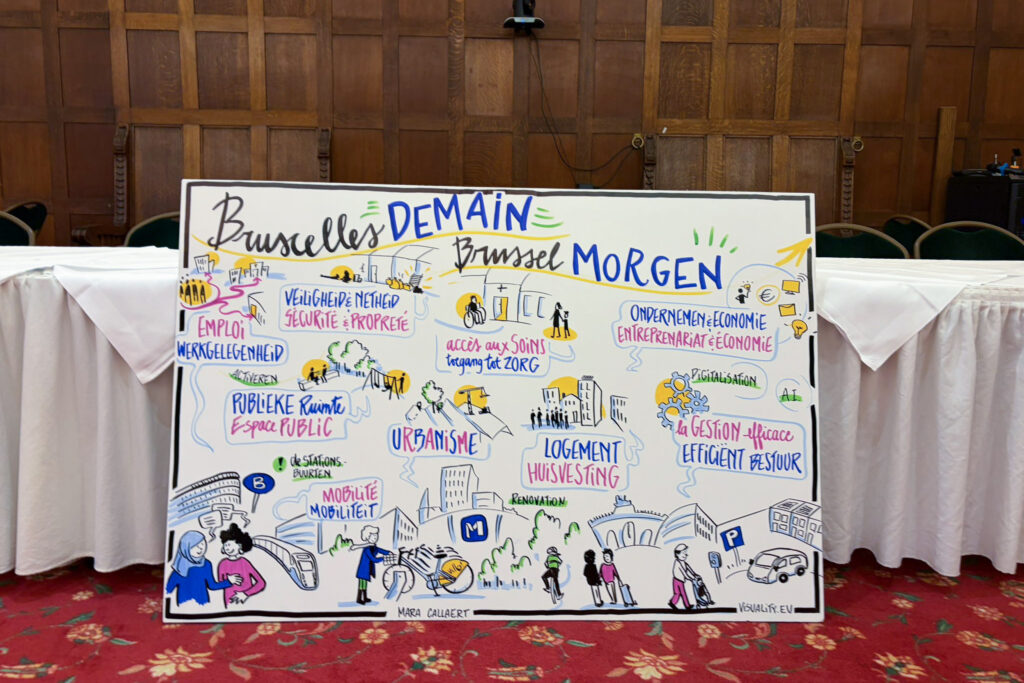 Bruxelles DEMAIN
Brussel MORGEN
VEILIGHEID & NETHEID
SÉCURITÉ & PROPRETÉ
EMPLOI
WERKGELEGENHEID
ACTIVEREN
accès aux SOINS
toegang tot ZORG
ONDERNEMEN & ECONOMIE
ENTREPRENARIAT & ÉCONOMIE
PUBLIEKE Ruimte
Espace PUBLIC
URBANISME
LOGEMENT
HUISVESTING
DIGITALISATION
AI
la GESTION efficace
EFFICIËNT BESTUUR
! de STATIONS-
BUURTEN
MOBILITÉ
MOBILITEIT
RENOVATION
B
M
P
€
MARA CALLAERT
VISUALITY.EU